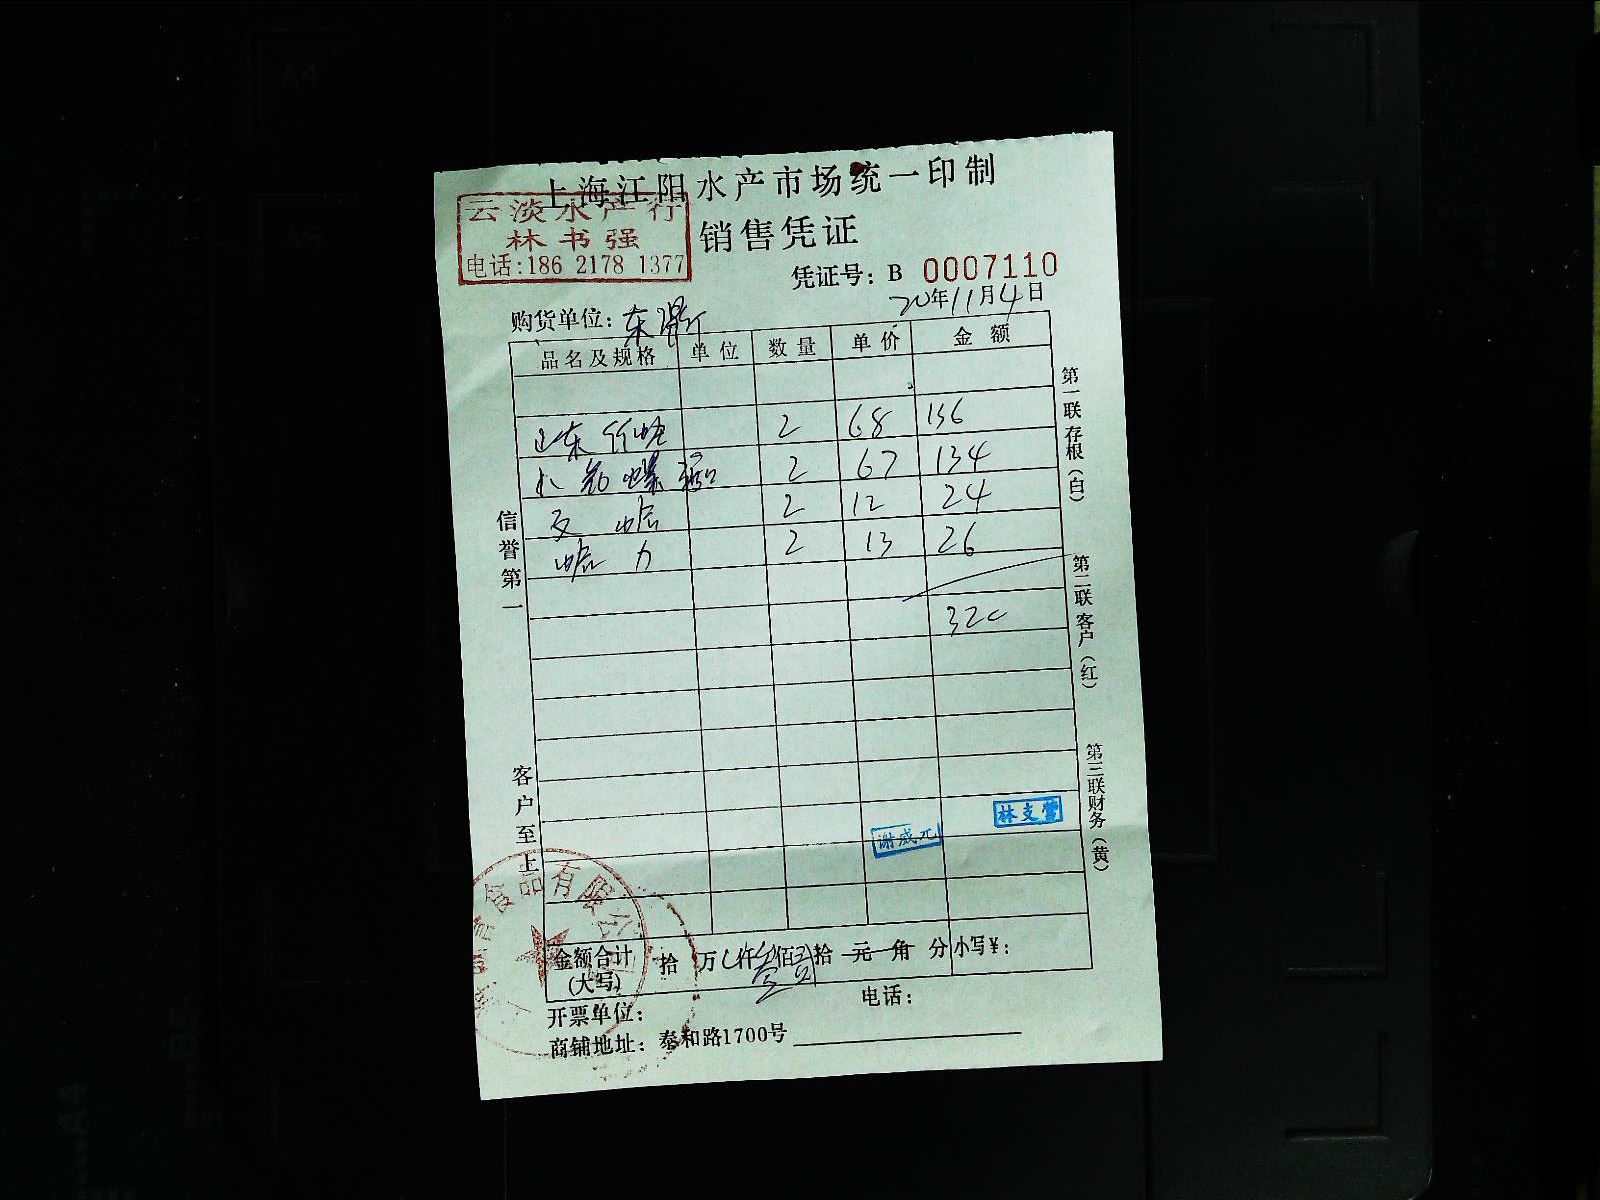 上海江阳水产市场统一印制
云淡水产行
林书强
电话:186 2178 1377
销售凭证
凭证号: B 0007110
20年11月4日
购货单位: 东
品名及规格 单位 数量 单价 金额
山东 2 68 136
2 67 134
2 12 24
2 13 26
320
信誉第一
客户至上
第一联存根(白)
第二联客户(红)
第三联财务(黄)
林支营
谢成元
食品有限公
金额合计(大写) 拾 万 仟叁佰贰拾 元 角 分 小写¥:
开票单位: 电话:
商铺地址: 泰和路1700号